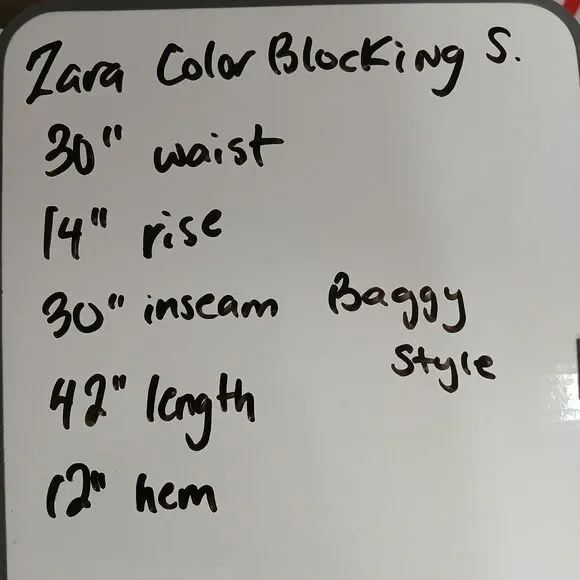 Zara Color Blocking S.
30" waist
14" rise
30" inseam
Baggy
Style
42" length
12" hem